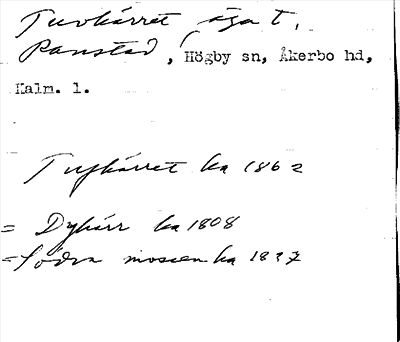 Tuvkärret äga t,
Ramstad, Högby sn, Åkerbo hd,
Kalm. l.
Tufkärret ha 1862
= Dykärr ha 1808
= Södra mossen ha 1827